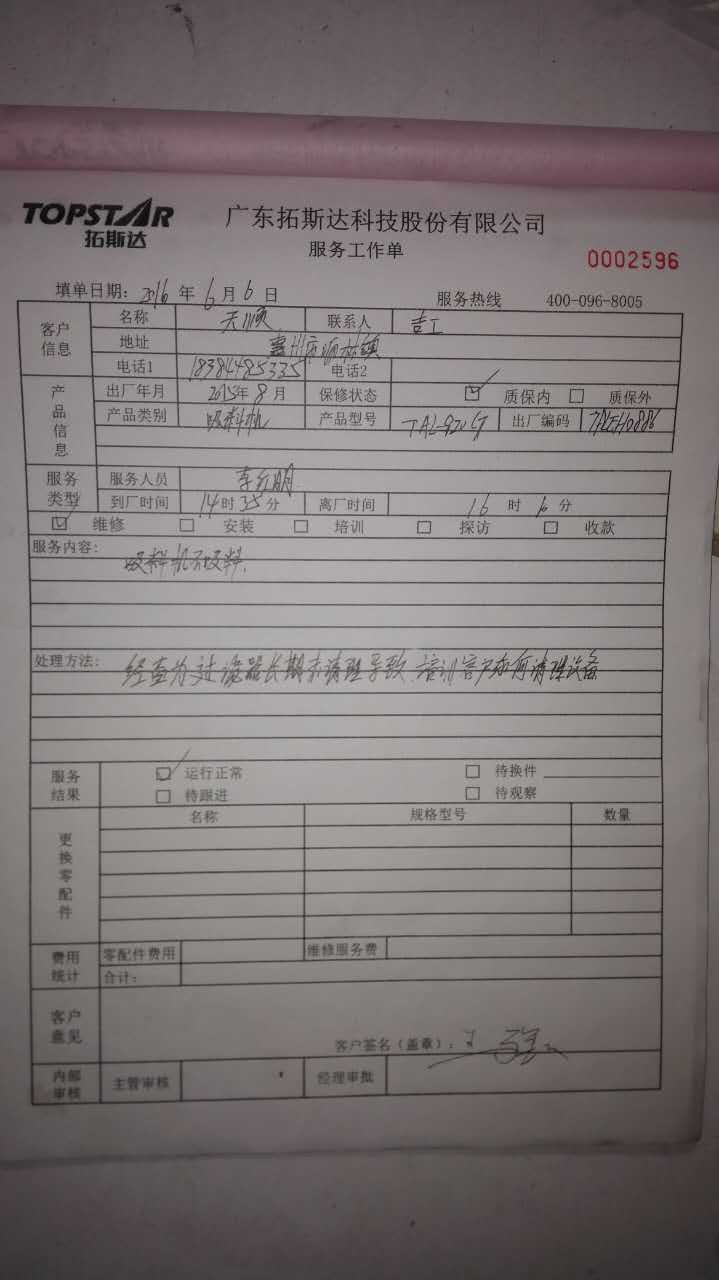 TOPSTAR
拓斯达
广东拓斯达科技股份有限公司
服务工作单
0002596
填单日期：2016 年 6 月 6 日 服务热线 400-096-8005
客户信息
名称 天顺 联系人 吉工
地址 惠州市
电话1 18384485335 电话2
产品信息
出厂年月 2015年 8 月 保修状态 质保内 质保外
产品类别 吸料机 产品型号 出厂编码
服务类型
服务人员
到厂时间 14 时 35 分 离厂时间 16 时 分
维修 安装 培训 探访 收款
服务内容：
吸料机不吸料.
处理方法：
经查为过滤器长期未清理导致.培训客户如何清理设备
服务结果
运行正常 待换件
待跟进 待观察
更换零配件
名称 规格型号 数量
费用统计
零配件费用 维修服务费
合计：
客户意见
客户签名（盖章）：
内部审核
主管审核 经理审批